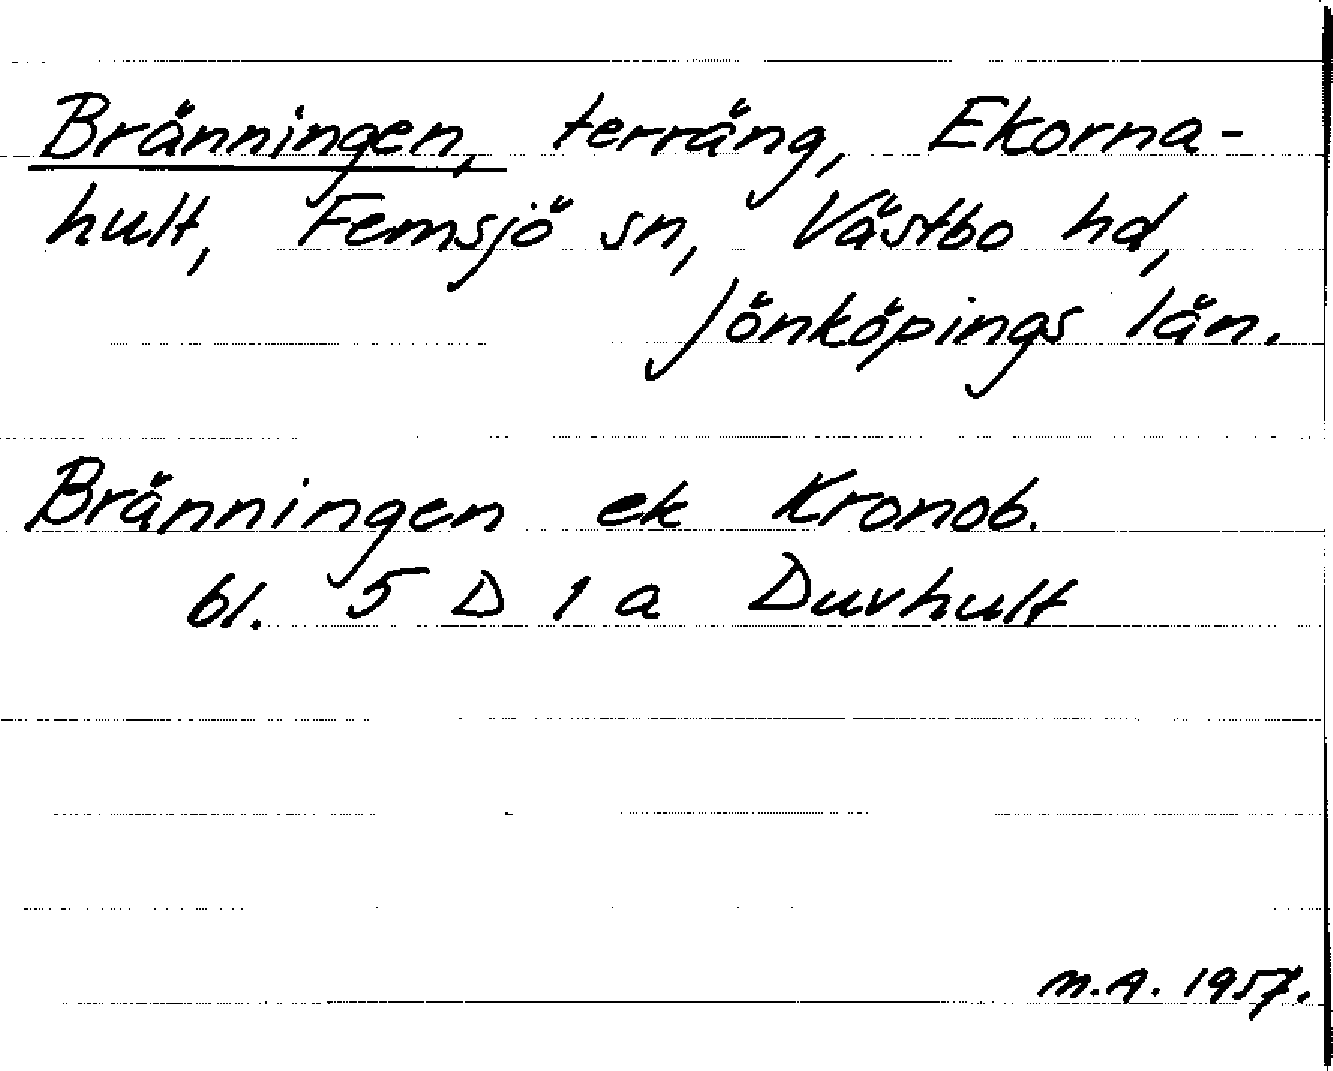 Bränningen, terräng, Ekorna-
hult, Femsjö sn, Västbo hd,
Jönköpings län.
Bränningen ek Kronob.
bl. 5 D 1 a Duvhult
M.A. 1957.